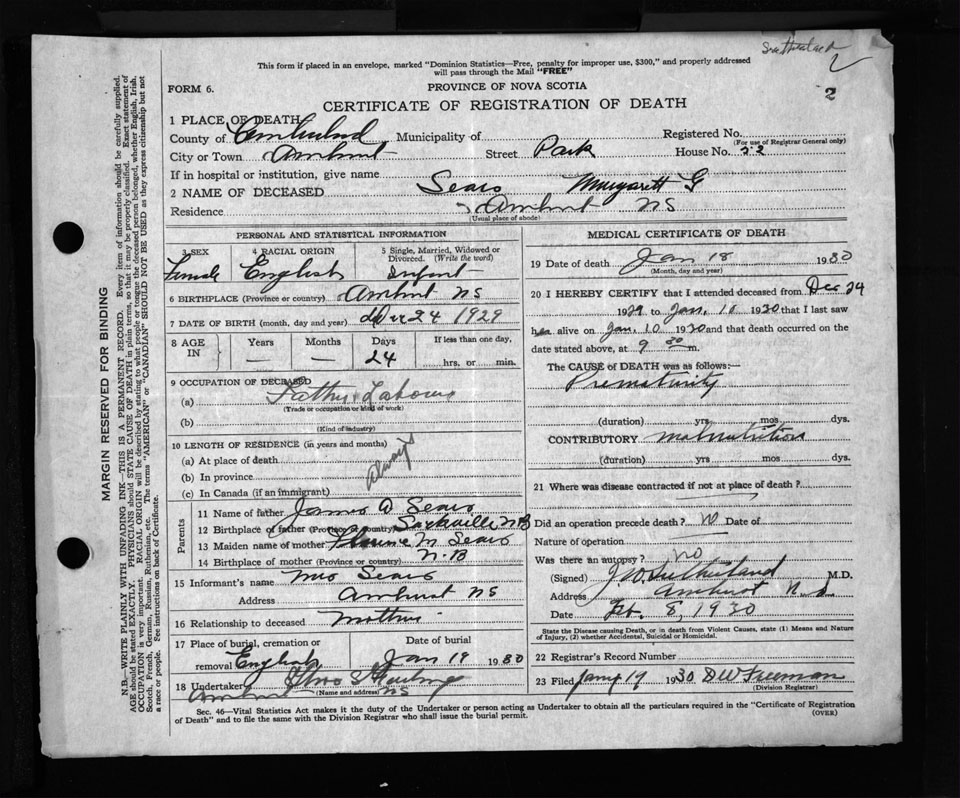 Sutherland
2
This form if placed in an envelope, marked "Dominion Statistics—Free, penalty for improper use, $300," and properly addressed
will pass through the Mail "FREE"
FORM 6.
PROVINCE OF NOVA SCOTIA
2
CERTIFICATE OF REGISTRATION OF DEATH
1 PLACE OF DEATH
County of Cumberland Municipality of Registered No.
(For use of Registrar General only)
City or Town Amherst Street Park House No. 22
If in hospital or institution, give name
2 NAME OF DECEASED Sears Margarett G
Residence Amherst NS
(Usual place of abode)
PERSONAL AND STATISTICAL INFORMATION
3 SEX 4 RACIAL ORIGIN 5 Single, Married, Widowed or
Divorced. (Write the word)
Female English Infant
6 BIRTHPLACE (Province or country) Amherst NS
7 DATE OF BIRTH (month, day and year) Dec 24 1929
8 AGE IN Years Months Days If less than one day,
— — 24 hrs. or min.
9 OCCUPATION OF DECEASED
(a) Father Labourer
(Trade or occupation or kind of work)
(b)
(Kind of industry)
10 LENGTH OF RESIDENCE (in years and months)
(a) At place of death
(b) In province always
(c) In Canada (if an immigrant)
Parents
11 Name of father James W Sears
12 Birthplace of father (Province or country) Sackville NB
13 Maiden name of mother Florence M Sears
14 Birthplace of mother (Province or country) N.B
15 Informant's name Mrs Sears
Address Amherst NS
16 Relationship to deceased Mother
17 Place of burial, cremation or Date of burial
removal English Jan 19 1930
18 Undertaker
(Name and address)
Amherst NS
MEDICAL CERTIFICATE OF DEATH
19 Date of death Jan 18 1930
(Month, day and year)
20 I HEREBY CERTIFY that I attended deceased from Dec 24
1929 to Jan. 10 1930 that I last saw
her alive on Jan. 10 1930 and that death occurred on
date stated above, at 9 30 m.
The CAUSE of DEATH was as follows:—
Prematurity
(duration) yrs mos dys.
CONTRIBUTORY Malnutrition
(duration) yrs mos dys.
21 Where was disease contracted if not at place of death?
Did an operation precede death? No Date of
Nature of operation
Was there an autopsy? no
(Signed) J W Sutherland M.D.
Address Amherst N.S
Date Feb. 8, 1930
State the Disease causing Death, or in death from Violent Causes, state (1) Means and Nature
of Injury, (2) whether Accidental, Suicidal or Homicidal.
22 Registrar's Record Number
23 Filed Jany 19 1930 D W Freeman
(Division Registrar)
Sec. 46—Vital Statistics Act makes it the duty of the Undertaker or person acting as Undertaker to obtain all the particulars required in the "Certificate of Registration
of Death" and to file the same with the Division Registrar who shall issue the burial permit.
(OVER)
MARGIN RESERVED FOR BINDING
N.B.—WRITE PLAINLY WITH UNFADING INK—THIS IS A PERMANENT RECORD. Every item of information should be carefully supplied.
AGE should be stated EXACTLY. PHYSICIANS should STATE CAUSE OF DEATH in plain terms, so that it may be properly classified. Exact statement of
OCCUPATION is very important. RACIAL ORIGIN will be described by stating to what people or tongue the deceased person belonged, whether English, Irish,
Scotch, French, German, Russian, Ruthenian, etc. The terms "AMERICAN" or "CANADIAN" SHOULD NOT BE USED as they express citizenship but not
a race or people. See instructions on back of Certificate.